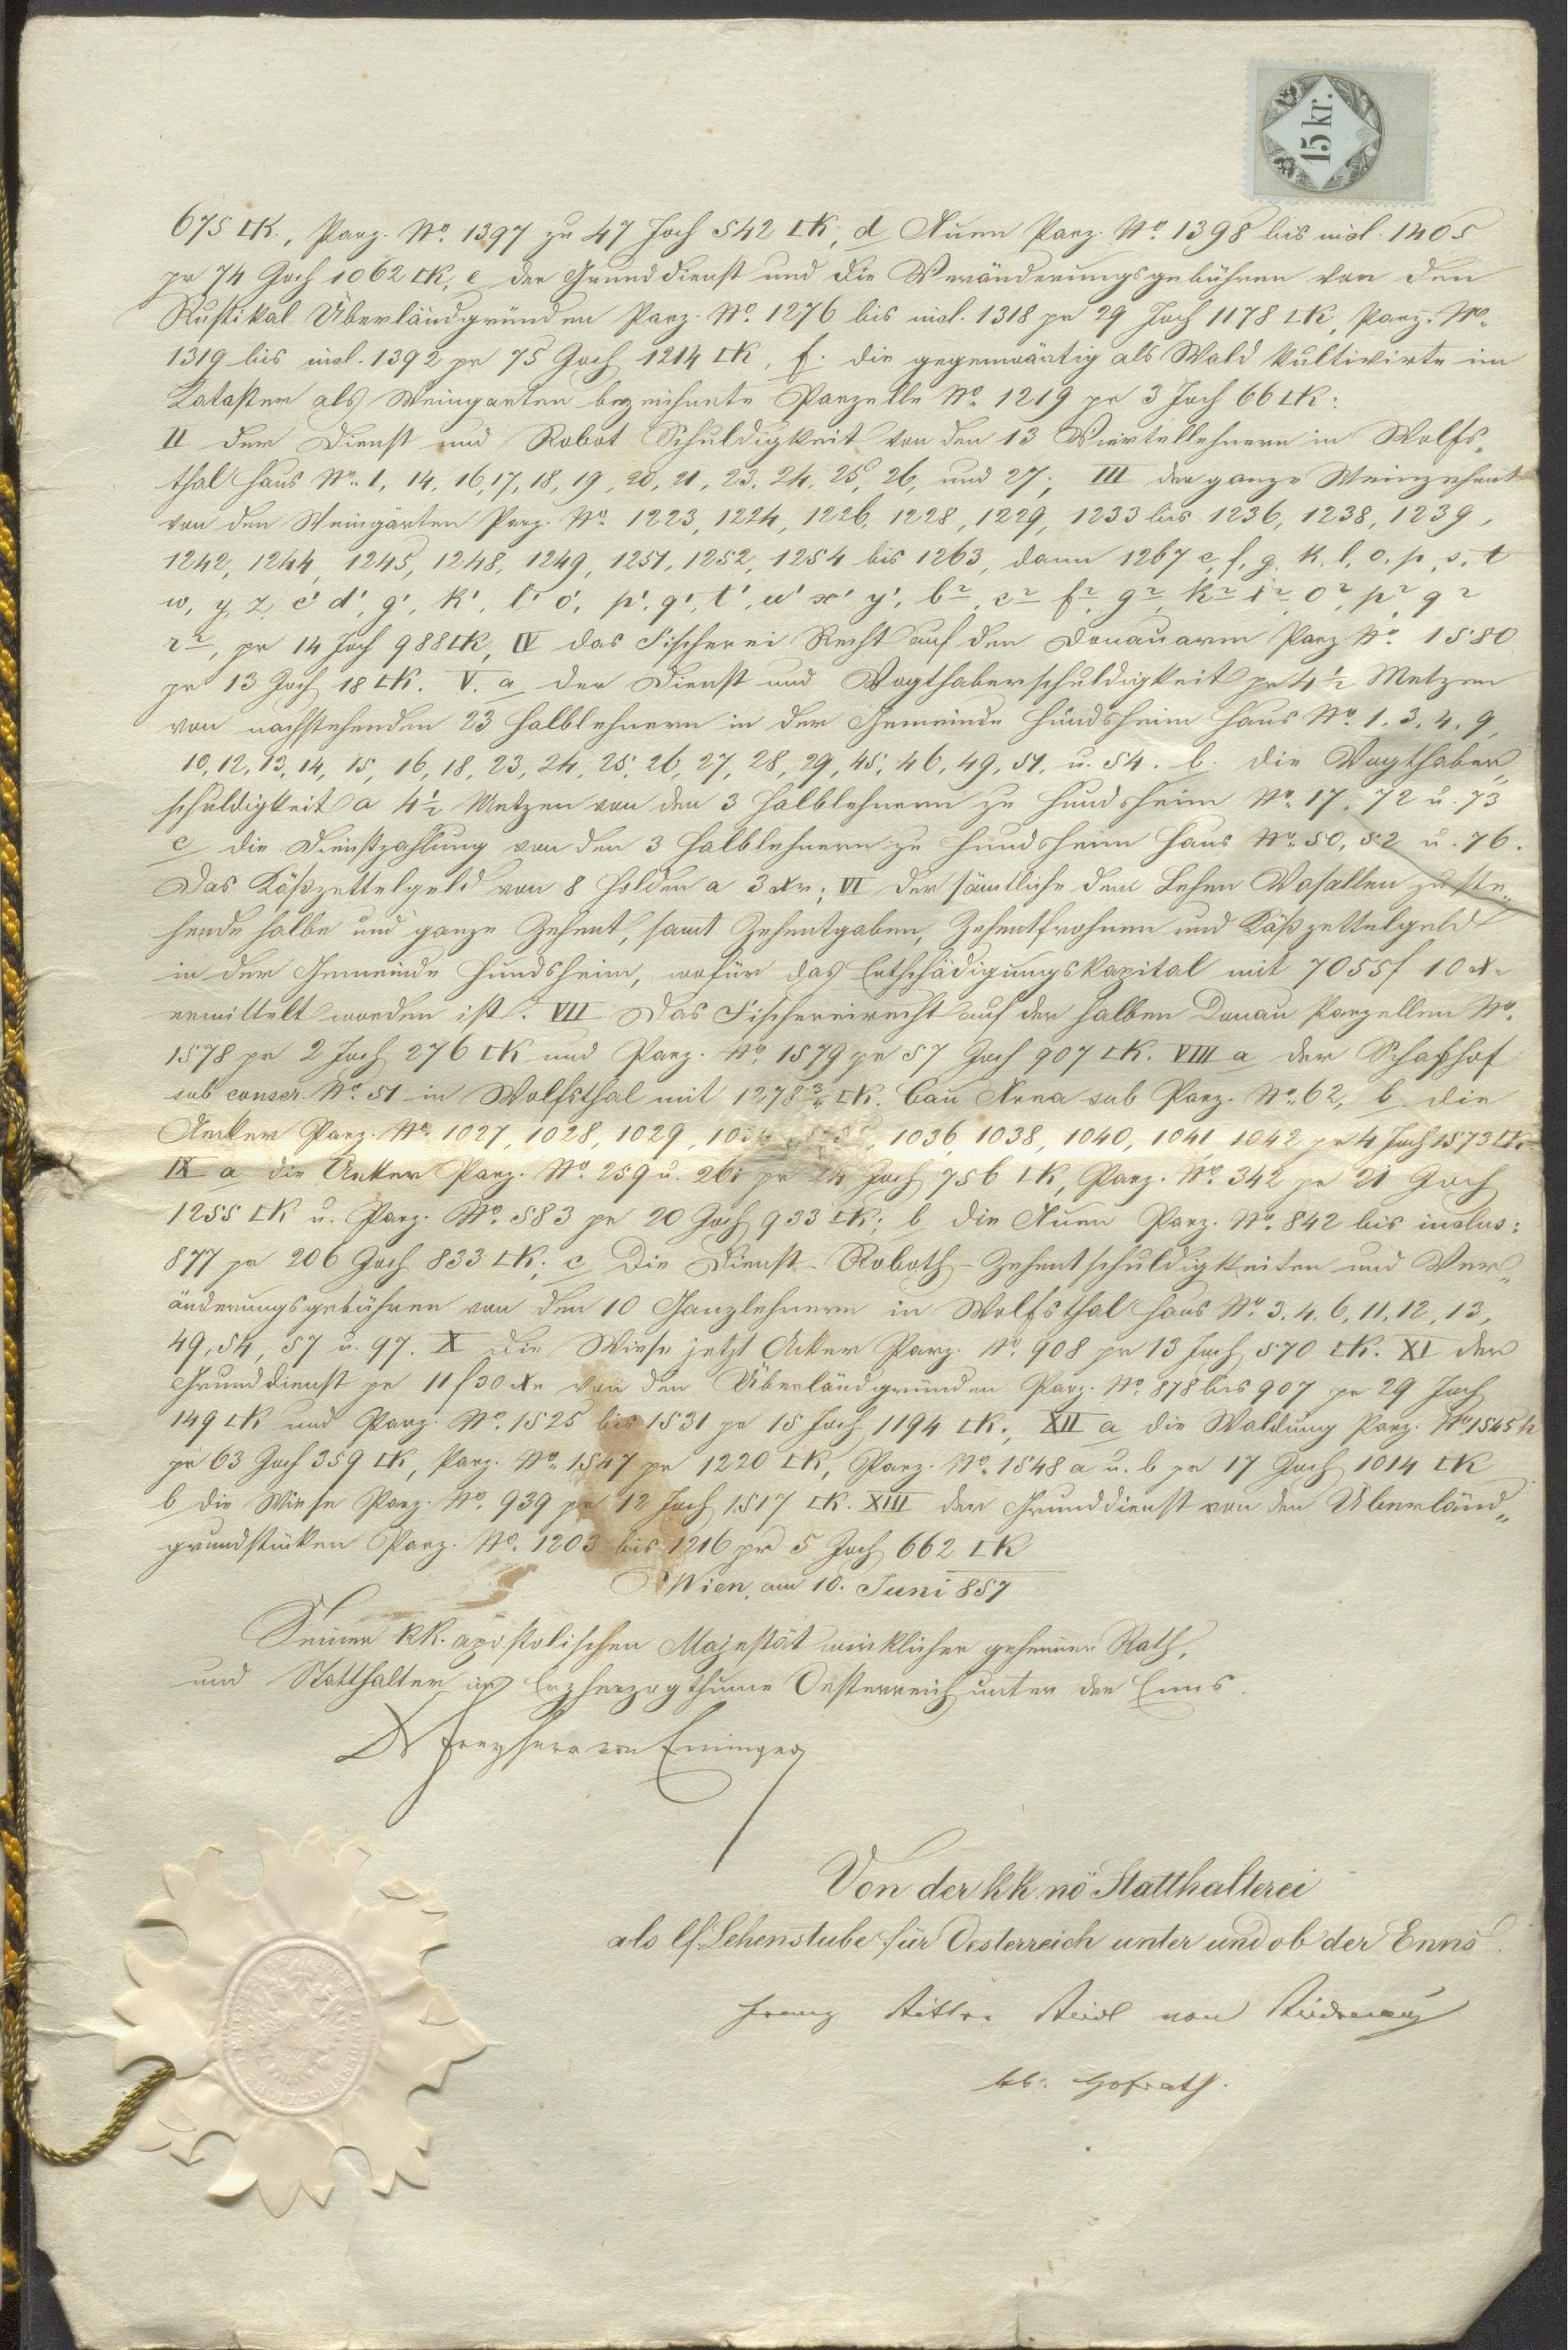 15 kr.
675 □K., Parz. No. 1397 zu 47 Joch 542 □K, d Auen Parz. No. 1398 bis incl. 1405
pr 74 Joch 1062 □K, e der Grunddienst und die Veränderungsgebühren von den
Rustikal Überländgründen Parz. No. 1276 bis incl. 1318 pr 29 Joch 1178 □K, Parz. No.
1319 bis incl. 1392 pr 75 Joch 1214 □K, f. die gegenwärtig als Wald kultivirte im
Kataster als Weingarten bezeichnete Parzelle No. 1219 pr 3 Joch 66 □K:
II der Dienst und Robot Schuldigkeit von den 13 Viertellehnern in Wolfs„
thal Haus No. 1, 14, 16, 17, 18, 19, 20, 21, 23, 24, 25, 26, und 27; III der ganze Weinzehent
von den Weingärten Parz. No. 1223, 1224, 1226, 1228, 1229, 1233 bis 1236, 1238, 1239,
1242, 1244, 1245, 1248, 1249, 1251, 1252, 1254 bis 1263, dann 1267 e, f, g, k, l, o, p, s, t
w, y, z, c' d', g', k', l' o', p', q', t', u' x' y', b², e² f², g², k² l², o², p², q²
r², pr 14 Joch 988 □K, IV das Fischerei Recht auf den Donauarm Parz. No. 1580
pr 13 Joch 18 □K. V. a der Dienst und Vogthaberschuldigkeit pr 4½ Metzen
von nachstehenden 23 Halblehnern in der Gemeinde Hundsheim Haus No. 1, 3, 4, 9,
10, 12, 13, 14, 15, 16, 18, 23, 24, 25, 26, 27, 28, 29, 45, 46, 49, 51, u. 54. b. die Vogthaber„
schuldigkeit a 4½ Metzen von den 3 Halblehnern zu Hundsheim No. 17, 72 u. 73
c die Dienstzahlung von den 3 Halblehnern zu Hundsheim Haus No. 50, 52 u. 76.
Das Käßzettelgeld von 8 Holden a 3 Xr; VI der sämtliche dem Lehen Vasallen zuste„
hende halbe und ganze Zehent, samt Zehentgaben, Zehentfrohnen und Käßzettelgeld
in der Gemeinde Hundsheim, wofür das Entschädigungskapital mit 7055 f 10 Xr
ermittelt worden ist. VII Das Fischereirecht auf der halben Donau Parzellen No.
1578 pr 2 Joch 276 □K und Parz. No. 1579 pr 57 Joch 907 □K. VIII a der Schafhof
sub conscr. No. 51 in Wolfsthal mit 1278 □K. Bau Area sub Parz. No. 62, b die
Aecker Parz. No. 1027, 1028, 1029, 1036, 1038, 1040, 1041, 1042 pr 4 Joch 1573 □K
IX a die Aecker Parz. No. 259 u. 261 pr Joch 756 □K, Parz. No. 342 pr 21 Joch
1255 □K u. Parz. No. 583 pr 20 Joch 933 □K; b die Auen Parz. No. 842 bis inclus:
877 pr 206 Joch 833 □K; c Die Dienst- Roboth- Zehentschuldigkeiten und Ver„
änderungsgebühren von den 10 Ganzlehnern in Wolfsthal Haus No. 3, 4, 6, 11, 12, 13,
49, 54, 57 u. 97. X Die Wiese jetzt Acker Parz. No. 908 pr 13 Joch 570 □K. XI der
Grunddienst pr 11 f 30 Xr von den Überländgründen Parz. No. 878 bis 907 pr 29 Joch
149 □K und Parz. No. 1525 bis 1531 pr 15 Joch 1194 □K., XII a die Waldung Parz. No. 1545 h
pr 63 Joch 359 □K, Parz. No. 1547 pr 1220 □K, Parz. No. 1548 a u. b pr 17 Joch 1014 □K
b die Wiese Parz. No. 939 pr 12 Joch 1517 □K. XIII der Grunddienst von den Überländ„
grundstücken Parz. No. 1203 bis 1216 pr 5 Joch 662 □K
Wien, am 10. Juni 857
Seiner kk. apostolischen Majestät wirklicher geheimer Rath,
und Statthalter im Erzherzogthume Oesterreich unter der Enns.
Freyherr von Eminger
Von der kk. nö Statthalterei
als lf Lehenstube für Oesterreich unter und ob der Enns.
Franz Ritter Riedl von Riedenau
kk. Hofrath.